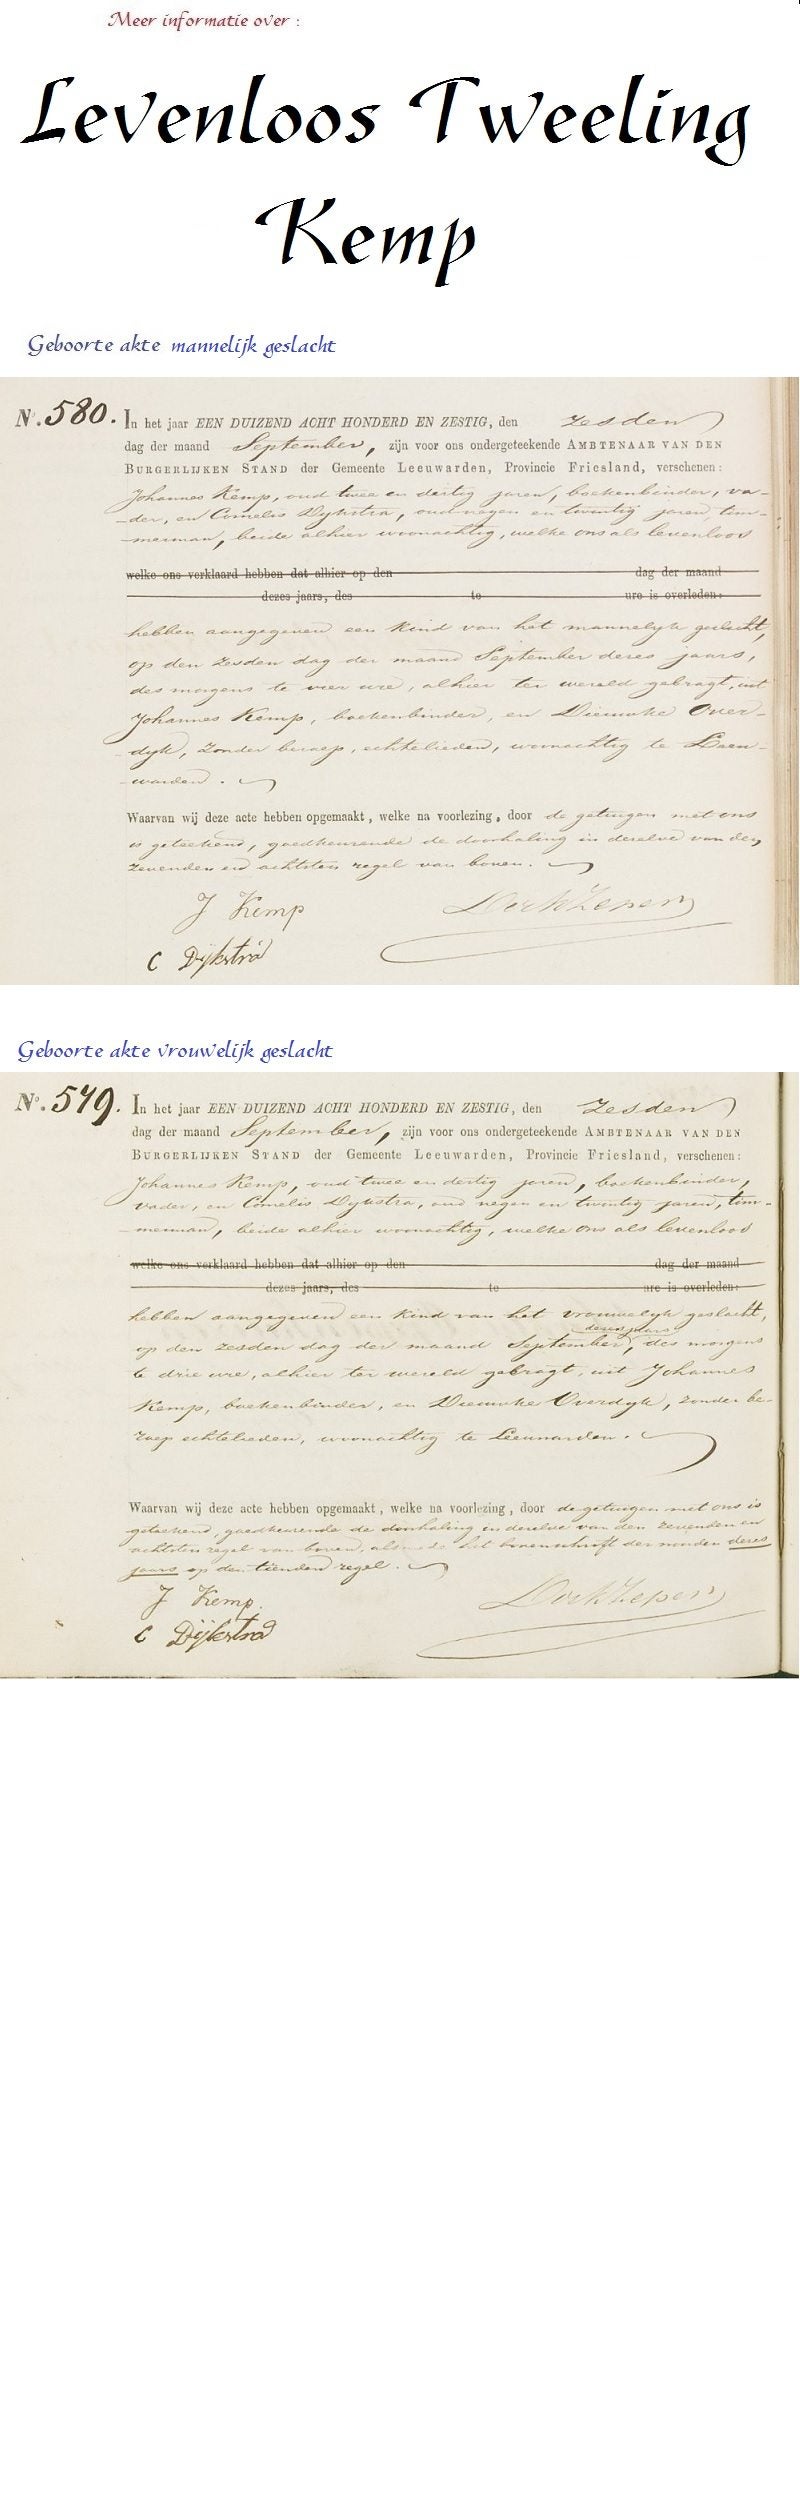 Meer informatie over :
Levenloos Tweeling
Kemp
Geboorte akte mannelijk geslacht
No. 580. In het jaar EEN DUIZEND ACHT HONDERD EN ZESTIG, den zesden
dag der maand September, zijn voor ons ondergeteekende AMBTENAAR VAN DEN
BURGERLIJKEN STAND der Gemeente Leeuwarden, Provincie Friesland, verschenen:
Johannes Kemp, oud twee en dertig jaren, boekenbinder, va-
der, en Cornelis Dijkstra, oud negen en twintig jaren, tim-
merman, beide alhier woonachtig, welke ons als levenloos
welke ons verklaard hebben dat alhier op den dag der maand
dezes jaars, des te ure is overleden:
hebben aangegeven een kind van het mannelijk geslacht,
op den zesden dag der maand September dezes jaars,
des morgens te vier ure, alhier ter wereld gebragt, uit
Johannes Kemp, boekenbinder, en Dieuwke Over-
dijk, zonder beroep, echtelieden, woonachtig te Leeu-
warden.
Waarvan wij deze acte hebben opgemaakt, welke na voorlezing, door de getuigen met ons
is geteekend, goedkeurende de doorhaling in dezelve van den
zevenden en achtsten regel van boven.
J Kemp
Dirk Zeper
C Dijkstra
Geboorte akte vrouwelijk geslacht
No. 579. In het jaar EEN DUIZEND ACHT HONDERD EN ZESTIG, den zesden
dag der maand September, zijn voor ons ondergeteekende AMBTENAAR VAN DEN
BURGERLIJKEN STAND der Gemeente Leeuwarden, Provincie Friesland, verschenen:
Johannes Kemp, oud twee en dertig jaren, boekenbinder,
vader, en Cornelis Dijkstra, oud negen en twintig jaren, tim-
merman, beide alhier woonachtig, welke ons als levenloos
welke ons verklaard hebben dat alhier op den dag der maand
dezes jaars, des te ure is overleden:
hebben aangegeven een kind van het vrouwelijk geslacht,
dezes jaars
op den zesden dag der maand September, des morgens
te drie ure, alhier ter wereld gebragt, uit Johannes
Kemp, boekenbinder, en Dieuwke Overdijk, zonder be-
roep echtelieden, woonachtig te Leeuwarden.
Waarvan wij deze acte hebben opgemaakt, welke na voorlezing, door de getuigen met ons is
geteekend, goedkeurende de doorhaling in dezelve van den zevenden en
achtsten regel van boven, alsmede het bovenschrift der woorden dezes
jaars op den tienden regel.
J Kemp.
Dirk Zeper
C Dijkstra